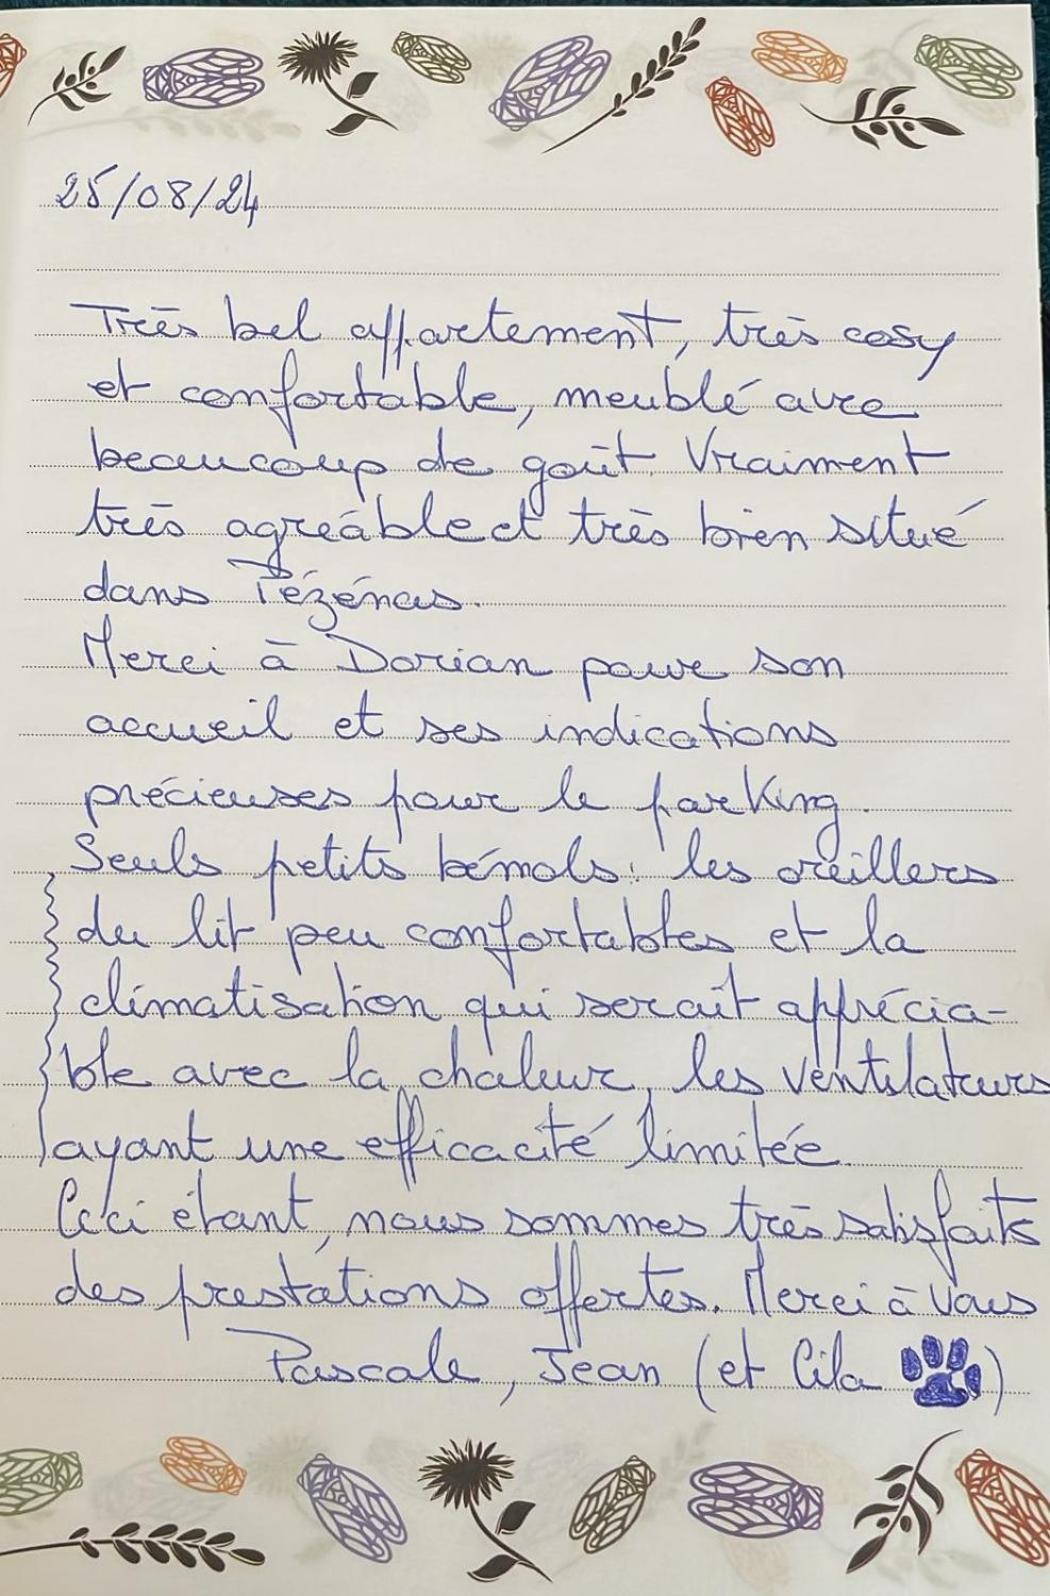 25/08/24
Très bel appartement, très cosy
et confortable, meublé avec
beaucoup de goût. Vraiment
très agréable et très bien situé
dans Pézénas.
Merci à Dorian pour son
accueil et ses indications
précieuses pour le parking.
Seuls petits bémols: les oreillers
du lit peu confortables et la
climatisation qui serait apprécia-
ble avec la chaleur, les ventilateurs
ayant une efficacité limitée.
Ceci étant, nous sommes très satisfaits
des prestations offertes. Merci à vous
Pascale, Jean (et Cila )